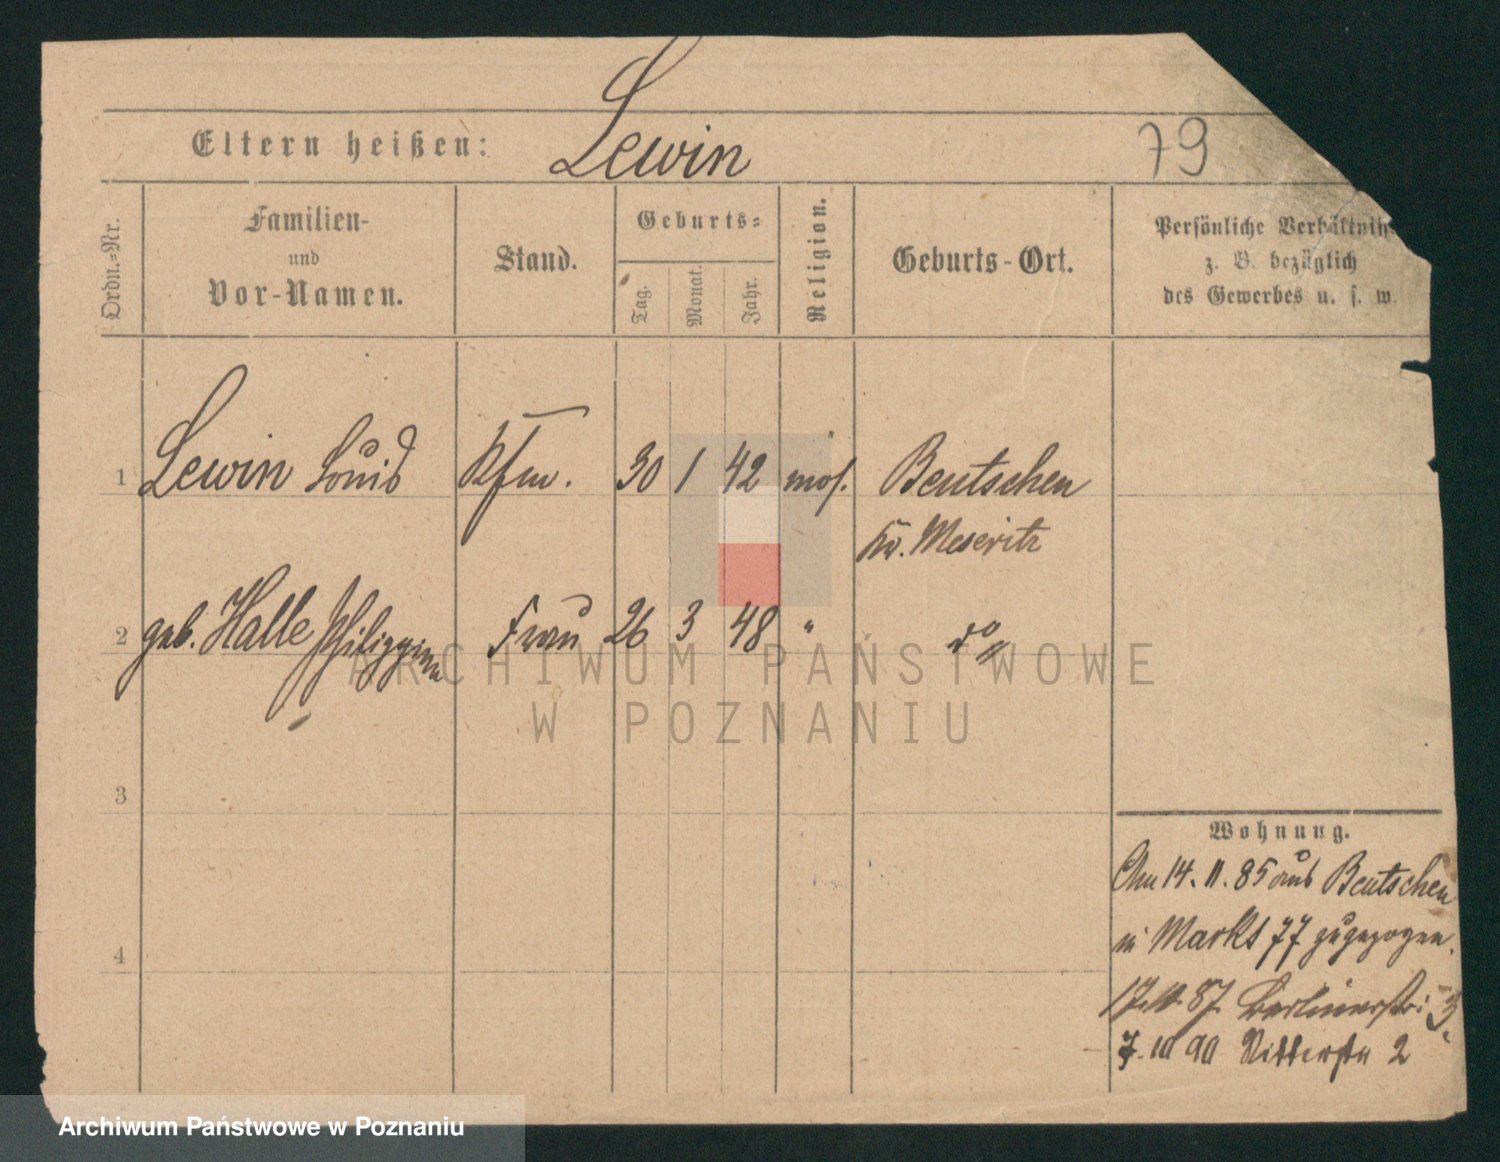 Eltern heißen: Lewin 79
Ordn.-Nr.
Familien-
und
Vor-Namen.
Stand.
Geburts-
Tag. Monat. Jahr.
Religion.
Geburts-Ort.
Persönliche Verhältniss
z. B. bezüglich
des Gewerbes u. s. w.
1 Lewin Louis Kfm. 30 1 42 mos. Bentschen
Kr. Meseritz
2 geb. Halle Philippine Frau 26 3 48 " do
ARCHIWUM PAŃSTWOWE
W POZNANIU
3
4
Wohnung.
Am 14. 11. 85 aus Bentschen
in Markt 77 zugezogen.
87 Berlinerstr: 3.
7. 10 90 Ritterstr 2
Archiwum Państwowe w Poznaniu